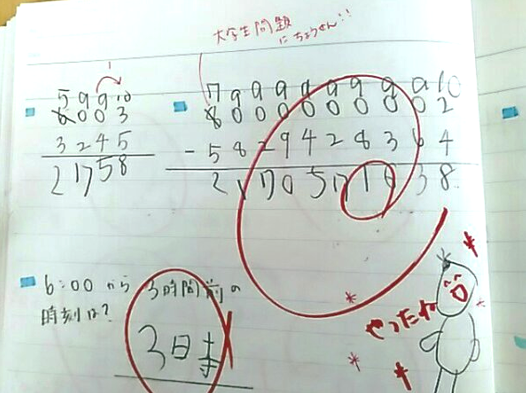 大学生問題
にちょうせん!!
1
5 9 9 10
6 0 0 3
3 2 4 5
2 7 5 8
7 9 9 9 9 9 9 9 9 10
8 0 0 0 0 0 0 0 0 2
- 5 8 2 9 4 2 8 3 6 4
2 1 7 0 5 7 1 6 3 8
6:00 から 3時間前の
時刻は?
3時
やったね